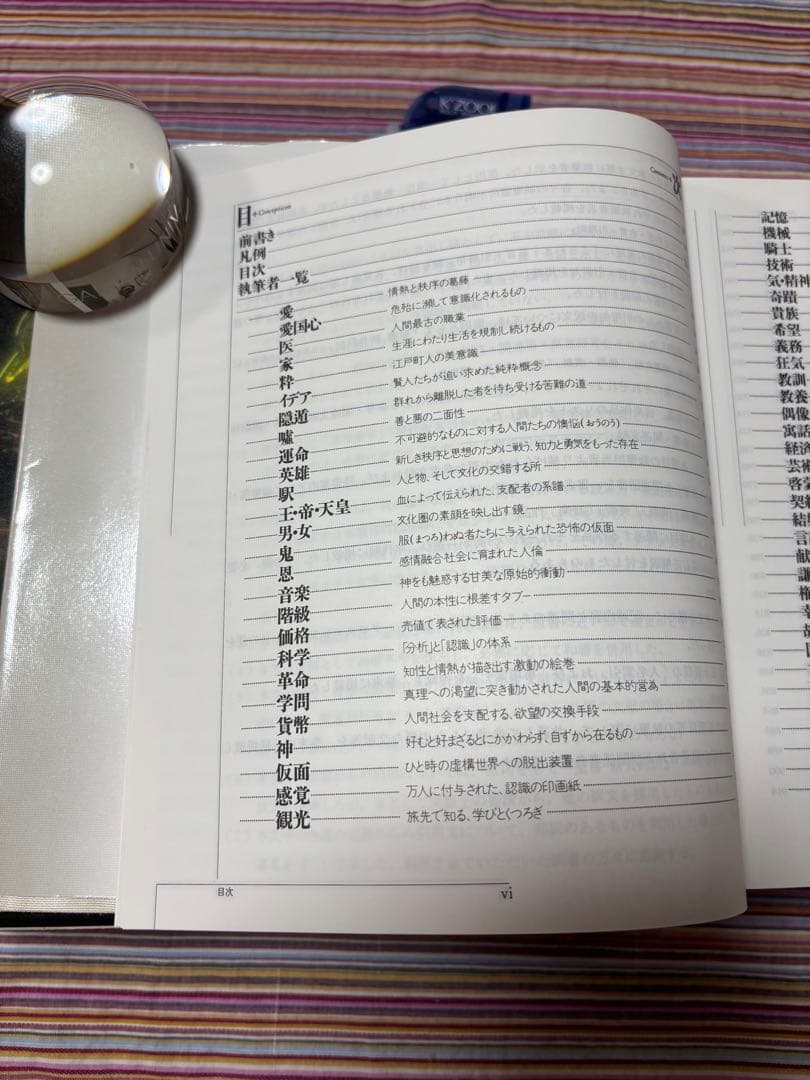 K'ZOOL
目 Conception
Contents
前書き
凡例
目次
執筆者一覧
愛 情熱と秩序の葛藤
愛国心 危殆に瀕して意識化されるもの
医 人間最古の職業
家 生涯にわたり生活を規制し続けるもの
粋 江戸町人の美意識
イデア 賢人たちが追い求めた純粋概念
隠遁 群れから離脱した者を待ち受ける苦難の道
嘘 善と悪の二面性
運命 不可避的なものに対する人間たちの懊悩(おうのう)
英雄 新しき秩序と思想のために戦う、知力と勇気をもった存在
駅 人と物、そして文化の交錯する所
王・帝・天皇 血によって伝えられた、支配者の系譜
男・女 文化圏の素顔を映し出す鏡
鬼 服(まつろ)わぬ者たちに与えられた恐怖の仮面
恩 感情融合社会に育まれた人倫
音楽 神をも魅惑する甘美な原始的衝動
階級 人間の本性に根差すタブー
価格 売値で表された評価
科学 「分析」と「認識」の体系
革命 知性と情熱が描き出す激動の絵巻
学問 真理への渇望に突き動かされた人間の基本的営為
貨幣 人間社会を支配する、欲望の交換手段
神 好むと好まざるとにかかわらず、自ずから在るもの
仮面 ひと時の虚構世界への脱出装置
感覚 万人に付与された、認識の印画紙
観光 旅先で知る、学びとくつろぎ
目次
vi
記憶
機械
騎士
技術
気・精神
奇蹟
貴族
希望
義務
狂気
教訓
教養
偶像
寓話
経済
芸術
啓蒙
契約
結婚
言
献
謙
権